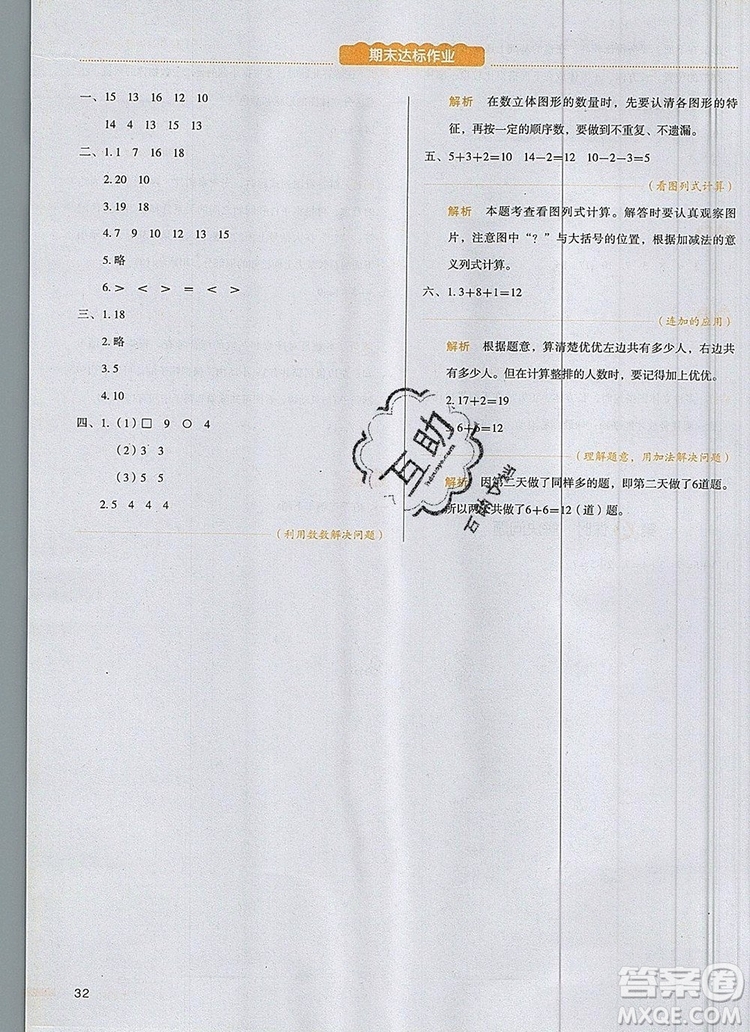 期末达标作业
一、15 13 16 12 10
14 4 13 12 13
二、1.1 7 16 18
2.20 10
3.19 18
4.7 9 15 10 12 13 15
5.略
6.> < > = < >
三、1.18
2.略
3.5
4.10
四、1.(1)□ 9 ○ 4
(2)3 3
(3)5 5
2.5 4 4 4
(利用数数解决问题)
解析 在数立体图形的数量时,先要认清各图形的特
征,再按一定的顺序数,要做到不重复、不遗漏。
五、5+3+2=10 14-2=12 10-2-3=5
(看图列式计算)
解析 本题考查看图列式计算。解答时要认真观察图
片,注意图中“?”与大括号的位置,根据加减法的意
义列式计算。
六、1.3+8+1=12
(连加的应用)
解析 根据题意,算清楚优优左边共有多少人,右边共
有多少人。但在计算整排的人数时,要记得加上优优。
2.17+2=19
3.6+6=12
(理解题意,用加法解决问题)
解析 因第二天做了同样多的题,即第二天做了6道题。
所以两天共做了6+6=12(道)题。
互助
32
答案圈
MXQE.COM